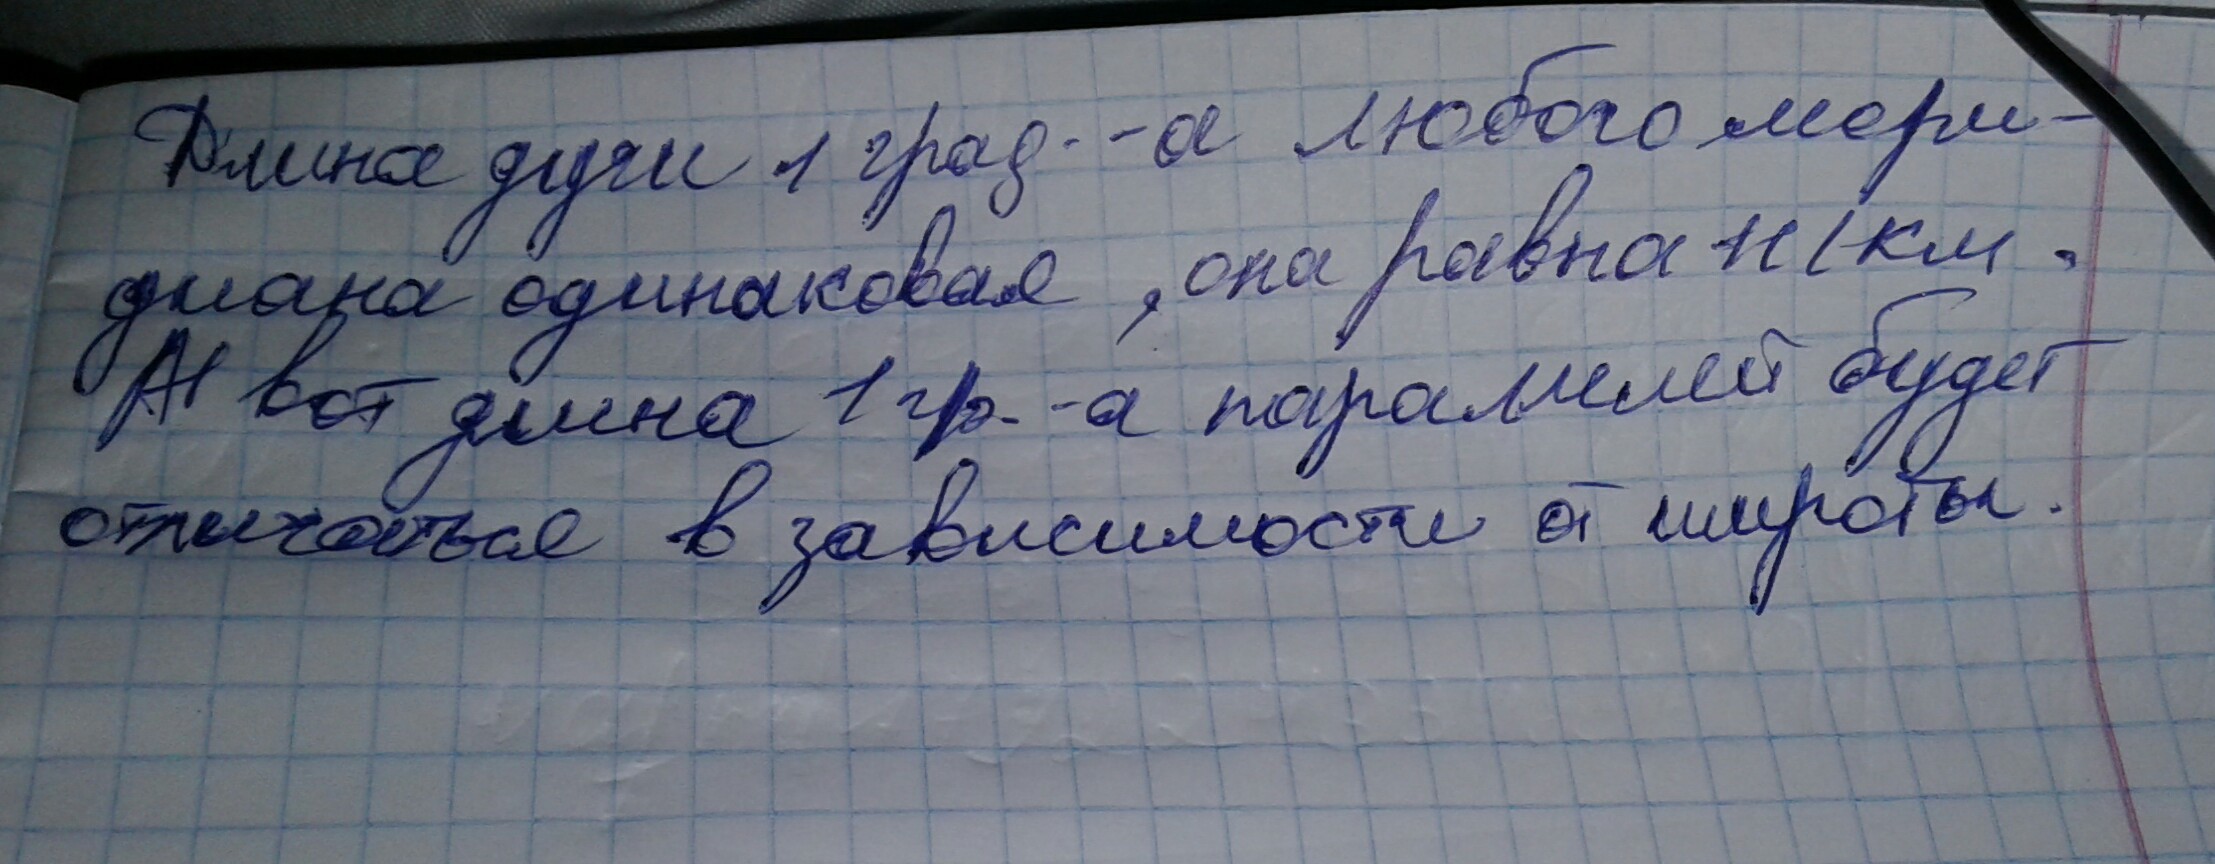 Длина дуги 1 град.-а любого мери-
диана одинаковая, она равна 111 км.
А вот длина 1 гр.-а параллелей будет
отличаться в зависимости от широты.